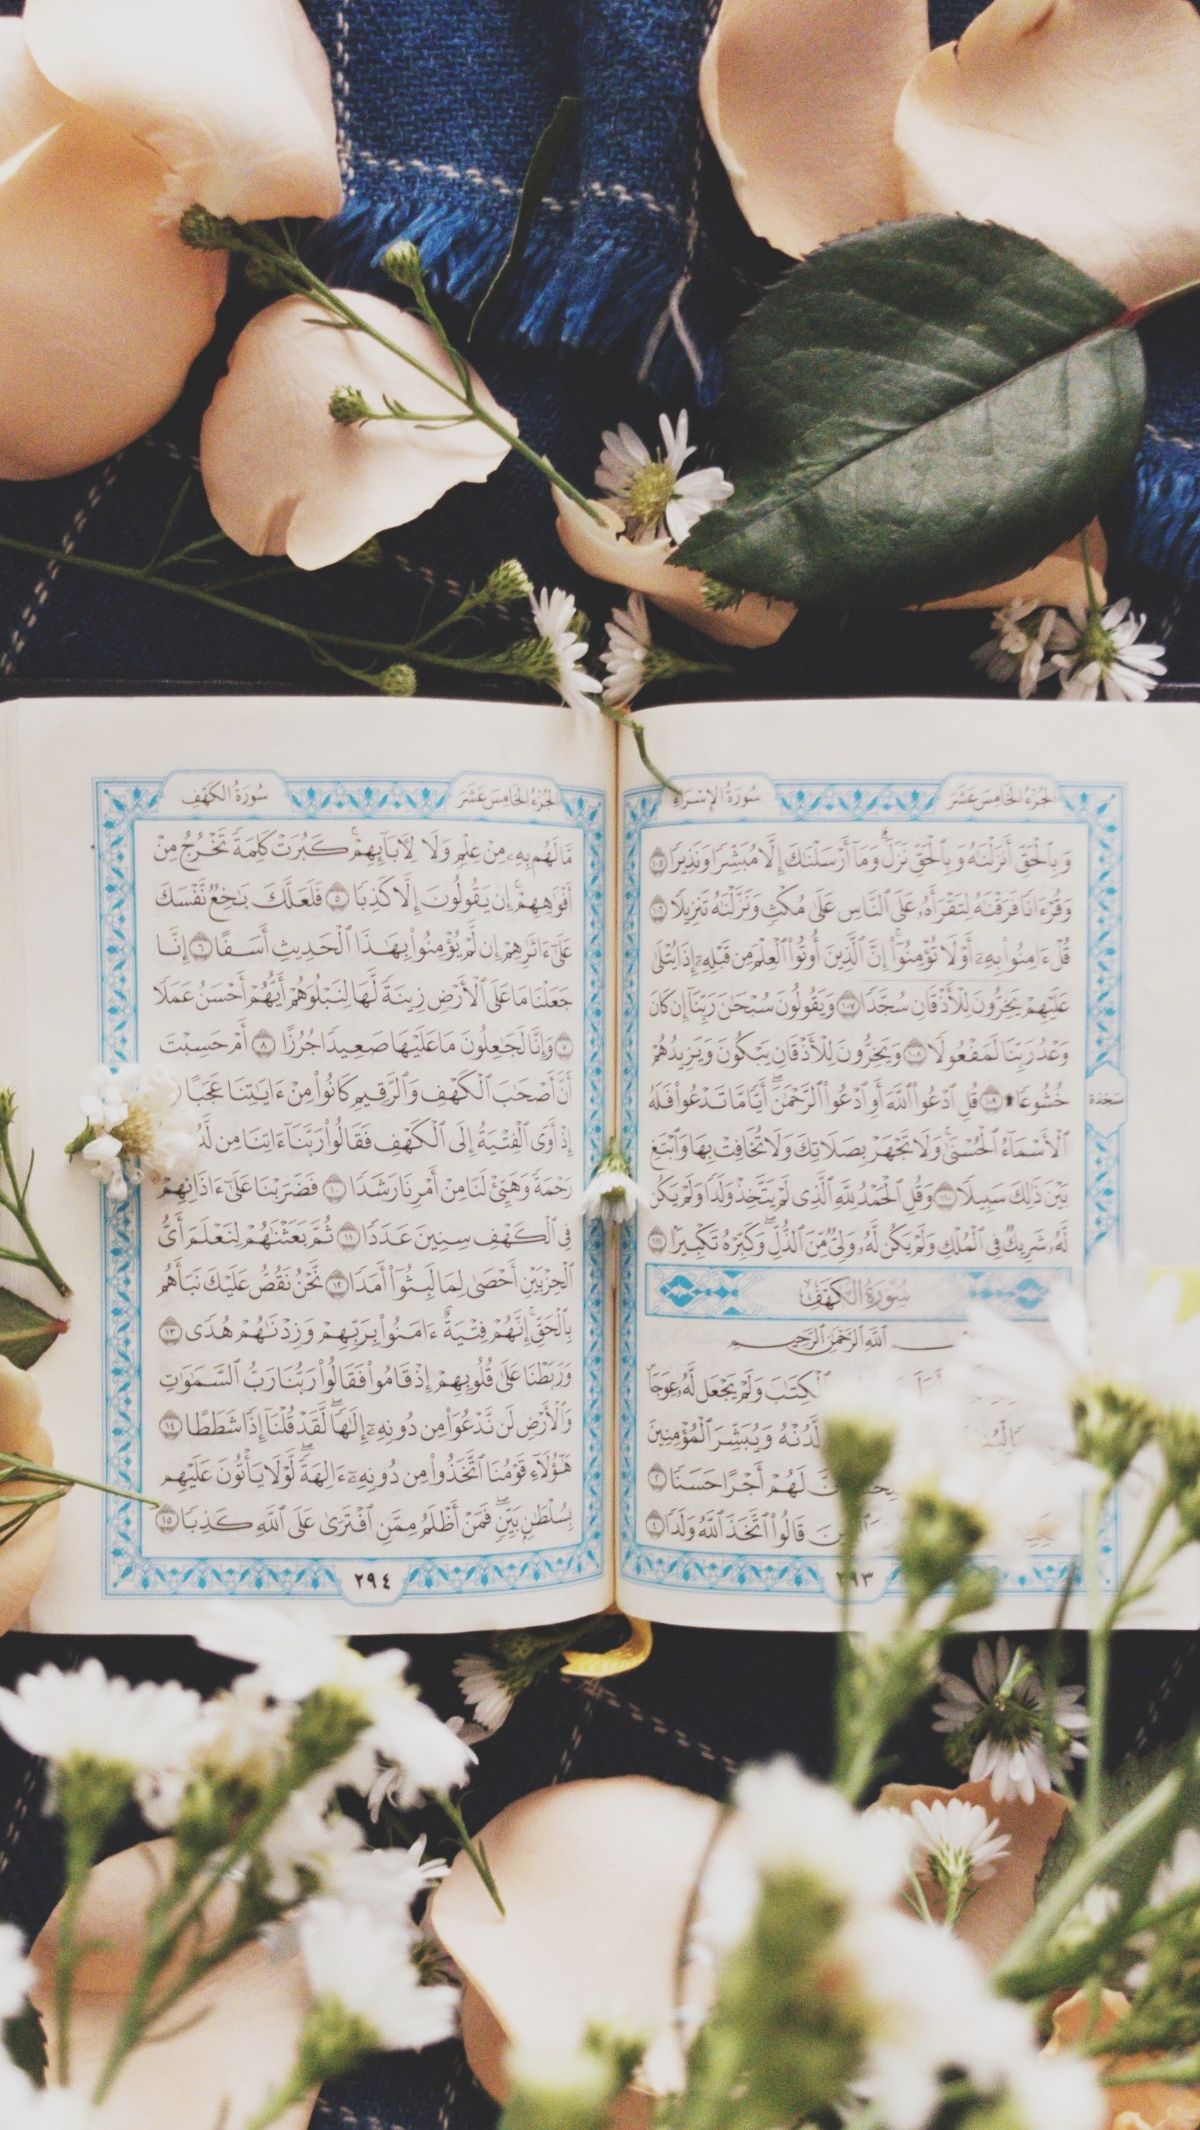 الجزء الخامس عشر
سورة الإسراء
وَبِٱلْحَقِّ أَنزَلْنَـٰهُ وَبِٱلْحَقِّ نَزَلَ ۗ وَمَآ أَرْسَلْنَـٰكَ إِلَّا مُبَشِّرًا وَنَذِيرًا ١٠٥
وَقُرْءَانًا فَرَقْنَـٰهُ لِتَقْرَأَهُۥ عَلَى ٱلنَّاسِ عَلَىٰ مُكْثٍ وَنَزَّلْنَـٰهُ تَنزِيلًا ١٠٦
قُلْ ءَامِنُوا۟ بِهِۦٓ أَوْ لَا تُؤْمِنُوٓا۟ ۚ إِنَّ ٱلَّذِينَ أُوتُوا۟ ٱلْعِلْمَ مِن قَبْلِهِۦٓ إِذَا يُتْلَىٰ
عَلَيْهِمْ يَخِرُّونَ لِلْأَذْقَانِ سُجَّدًا ١٠٧ وَيَقُولُونَ سُبْحَـٰنَ رَبِّنَآ إِن كَانَ
وَعْدُ رَبِّنَا لَمَفْعُولًا ١٠٨ وَيَخِرُّونَ لِلْأَذْقَانِ يَبْكُونَ وَيَزِيدُهُمْ
خُشُوعًا ۩ ١٠٩ قُلِ ٱدْعُوا۟ ٱللَّهَ أَوِ ٱدْعُوا۟ ٱلرَّحْمَـٰنَ ۖ أَيًّا مَّا تَدْعُوا۟ فَلَهُ
سجدة
ٱلْأَسْمَآءُ ٱلْحُسْنَىٰ ۚ وَلَا تَجْهَرْ بِصَلَاتِكَ وَلَا تُخَافِتْ بِهَا وَٱبْتَغِ
بَيْنَ ذَٰلِكَ سَبِيلًا ١١٠ وَقُلِ ٱلْحَمْدُ لِلَّهِ ٱلَّذِى لَمْ يَتَّخِذْ وَلَدًا وَلَمْ يَكُن
لَّهُۥ شَرِيكٌ فِى ٱلْمُلْكِ وَلَمْ يَكُن لَّهُۥ وَلِىٌّ مِّنَ ٱلذُّلِّ ۖ وَكَبِّرْهُ تَكْبِيرًۢا ١١١
سورة الكهف
ٱللَّهِ ٱلرَّحْمَـٰنِ ٱلرَّحِيمِ
ٱلْكِتَـٰبَ وَلَمْ يَجْعَل لَّهُۥ عِوَجَا
لَّدُنْهُ وَيُبَشِّرَ ٱلْمُؤْمِنِينَ
لَهُمْ أَجْرًا حَسَنًا ٢
قَالُوا۟ ٱتَّخَذَ ٱللَّهُ وَلَدًا ٤
٢٩٣
الجزء الخامس عشر
سورة الكهف
مَّا لَهُم بِهِۦ مِنْ عِلْمٍ وَلَا لِـَٔابَآئِهِمْ ۚ كَبُرَتْ كَلِمَةً تَخْرُجُ مِنْ
أَفْوَٰهِهِمْ ۚ إِن يَقُولُونَ إِلَّا كَذِبًا ٥ فَلَعَلَّكَ بَـٰخِعٌ نَّفْسَكَ
عَلَىٰٓ ءَاثَـٰرِهِمْ إِن لَّمْ يُؤْمِنُوا۟ بِهَـٰذَا ٱلْحَدِيثِ أَسَفًا ٦ إِنَّا
جَعَلْنَا مَا عَلَى ٱلْأَرْضِ زِينَةً لَّهَا لِنَبْلُوَهُمْ أَيُّهُمْ أَحْسَنُ عَمَلًا
٧ وَإِنَّا لَجَـٰعِلُونَ مَا عَلَيْهَا صَعِيدًا جُرُزًا ٨ أَمْ حَسِبْتَ
أَنَّ أَصْحَـٰبَ ٱلْكَهْفِ وَٱلرَّقِيمِ كَانُوا۟ مِنْ ءَايَـٰتِنَا عَجَبًا
إِذْ أَوَى ٱلْفِتْيَةُ إِلَى ٱلْكَهْفِ فَقَالُوا۟ رَبَّنَآ ءَاتِنَا مِن
رَحْمَةً وَهَيِّئْ لَنَا مِنْ أَمْرِنَا رَشَدًا ١٠ فَضَرَبْنَا عَلَىٰٓ ءَاذَانِهِمْ
فِى ٱلْكَهْفِ سِنِينَ عَدَدًا ١١ ثُمَّ بَعَثْنَـٰهُمْ لِنَعْلَمَ أَىُّ
ٱلْحِزْبَيْنِ أَحْصَىٰ لِمَا لَبِثُوٓا۟ أَمَدًا ١٢ نَّحْنُ نَقُصُّ عَلَيْكَ نَبَأَهُم
بِٱلْحَقِّ ۚ إِنَّهُمْ فِتْيَةٌ ءَامَنُوا۟ بِرَبِّهِمْ وَزِدْنَـٰهُمْ هُدًى ١٣
وَرَبَطْنَا عَلَىٰ قُلُوبِهِمْ إِذْ قَامُوا۟ فَقَالُوا۟ رَبُّنَا رَبُّ ٱلسَّمَـٰوَٰتِ
وَٱلْأَرْضِ لَن نَّدْعُوَا۟ مِن دُونِهِۦٓ إِلَـٰهًا ۖ لَّقَدْ قُلْنَآ إِذًا شَطَطًا ١٤
هَـٰٓؤُلَآءِ قَوْمُنَا ٱتَّخَذُوا۟ مِن دُونِهِۦٓ ءَالِهَةً ۖ لَّوْلَا يَأْتُونَ عَلَيْهِم
بِسُلْطَـٰنٍۭ بَيِّنٍ ۖ فَمَنْ أَظْلَمُ مِمَّنِ ٱفْتَرَىٰ عَلَى ٱللَّهِ كَذِبًا ١٥
٢٩٤